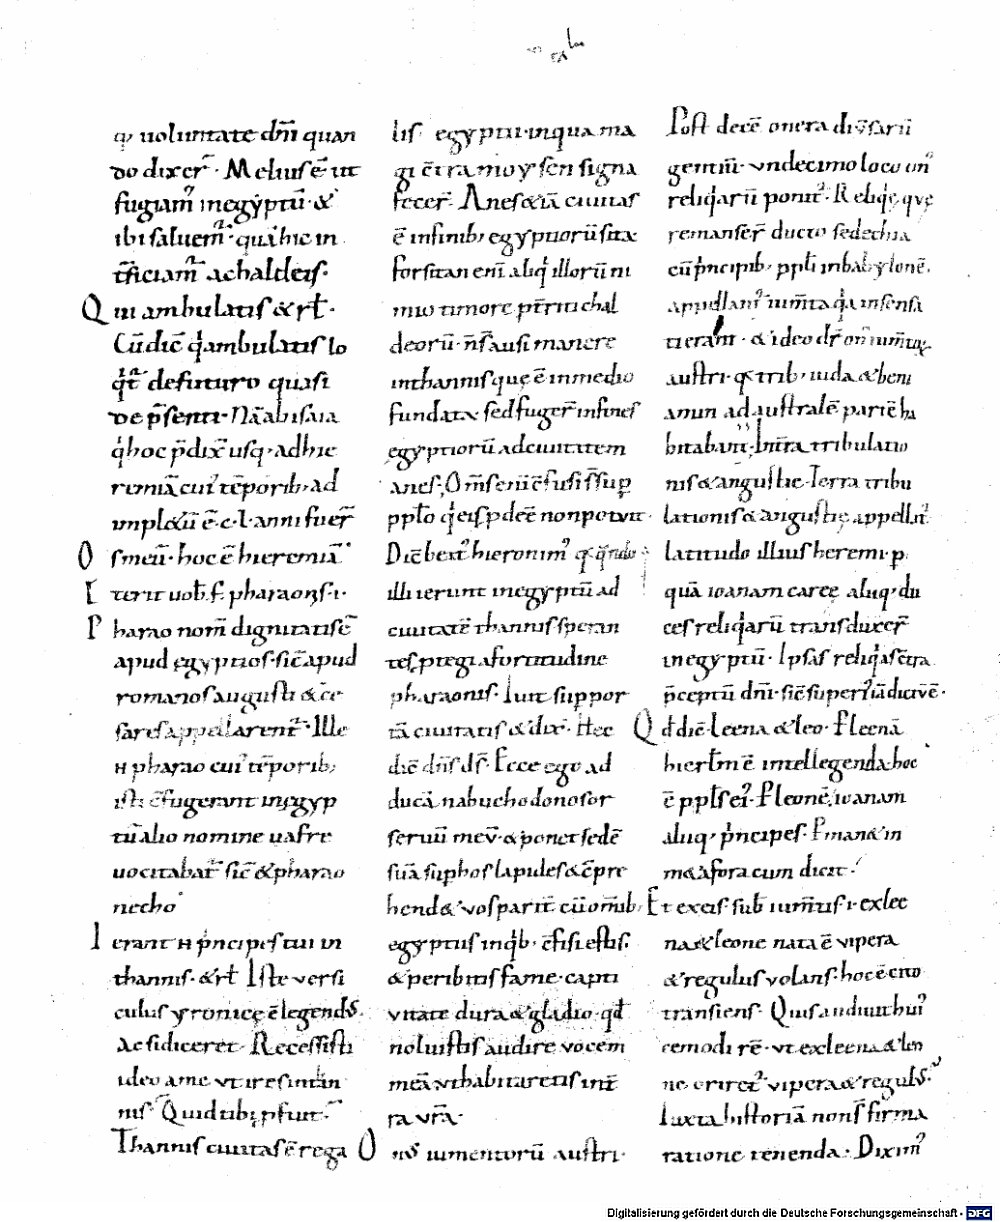 uoluntate dn̄i quan
do dixer̄. Melius ē ut
fugiam' in egyptū. &
ibi saluem'. quā hic in
t̄ficiam' a chaldeis.
Qui ambulatis & rł.
Cū dic̄ q'ambulatis lo
q't̄ de futuro quasi
de p̄senti. Nā ab isaia
q' hoc p̄dix̄ usq; ad hie
remiā cui' tēporib; ad
impl&ū ē. c. l. anni fuer̄
Os meū. hoc ē hieremiā
pharaonis. i.
Pharao nom̄ dignitatis ē
apud egyptios. sic̄ apud
romanos augusti & ce
sares appellarent'. Ille
н pharao cui' tēporib;
isti c̄fugerant in egyp
tū alio nomine uafre
uocitabat'. sic̄ & pharao
necho
Ierant н p'ncipes tui in
thannis. & rł Iste versi
culus yronicę ē legend'.
Ac si diceret. Recessisti
ideo a me vt ires in than
nis. Quid tibi pfuit.
Thannis ciuitas ē rega
lis egyptii. in qua ma
gi c̄tra moysen signa
fecer̄. Anes & iā ciuitas
ē in finib; egyptiorū sita
forsitan eni aliq' illorū ni
mio timore pt̄riti chal
deorū. n̄ s̄ ausi manere
in thannis quę ē in medio
fundata. sed fuger̄ in fines
egyptiorū ad ciuitatem
anes. Om̄s eni c̄fusi s̄ sup
pplo q' eis pdeē non potuit.
Dic̄ beat' hieronim'
illi ierunt in egyptū ad
ciuitatē thannis speran
tes ptegi a fortitudine
pharaonis. Iuit suppor
tā ciuitatis & dix̄. Hec
dic̄ dn̄s ds̄. Ecce ego ad
ducā nabuchodonosor
seruū mev̄. & ponet sedē
suā sup hos lapides & c̄pre
hend&. vos parit̄ cū om̄ib;
egyptus in q'b; c̄fisi estis.
& peribitis fame. capti
vitate dura & gladio. qđ
noluistis audire vocem
meā vt habitaretis in t̄
ra vr̄a.
On̄s iumentorū austri.
Post decē onera diūsarū
gentiū. vndecimo loco on'
reliq'arū ponit'. Reliq'ę quę
remanser̄ ducto sedechia
cū p'ncipib; ppli in babylonē.
appellant' iūmta q'a insensa
ti erant. & ideo dr̄ on' iūmtoꝝ
austri. q'a trib; iuda & beni
amin ad australē partē ha
bitabant. In t̄ra tribulatio
nis & angustie. Terra tribu
lationis & angustię appellat'.
latitudo illius heremi. p
quā ioanam caree aliiq; du
ces reliq'arū transduxer̄
in egyptū. Ipsas reliq'as c̄tra
p̄ceptū dn̄i. sic̄ superi' iā dictv̄ ē.
Qđ dic̄. leena & leo. P leenā
hierłm ē intellegenda. hoc
ē ppłs ei'. P leonē, ioanam
aliiq; p'ncipes. P man& in
m& a fora cum dicit.
Et ex eis. sub iūmtis. i. ex lee
na & leone nata ē vipera
& regulus volans. hoc ē cito
transiens. Quis audiuit hui'
cemodi rē. vt ex leena & leo
ne oriret' vipera & regulus.
Iuxta historiā non s̄ firma
ratione tenenda. Dixim'
Digitalisierung gefördert durch die Deutsche Forschungsgemeinschaft - DFG